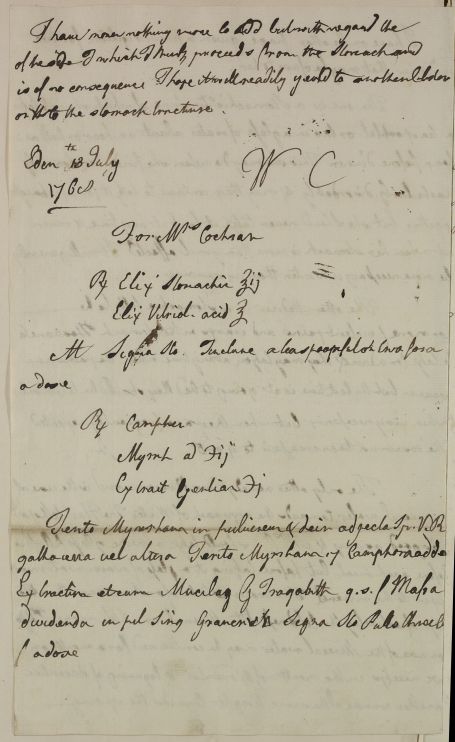 I have now nothing more to add but with regard the
of the side I which I think proceeds from the stomach and
is of no consequence I hope it will readily yeald to another
or to the stomach tincture.
Eden 18th July
1768
W C
For Mrs Cochran
℞ Elix Stomachic ℥ij
Elix Vitriol. acid ℥
M Signa No. Tincture a teaspoonful or two for a
a dose
℞ Camphor
Myrrh a ʒij
Extract Gentian ʒj
Terito Myrrham in pulverem & dein adjecta Sp. V. R
gutta una vel altera Terito Myrrham cum Camphora adde
Extractum et cum Mucilag G Tragakth q.s. f Massa
dividenda in pil sing Granor Signa No Pills three
f a dose